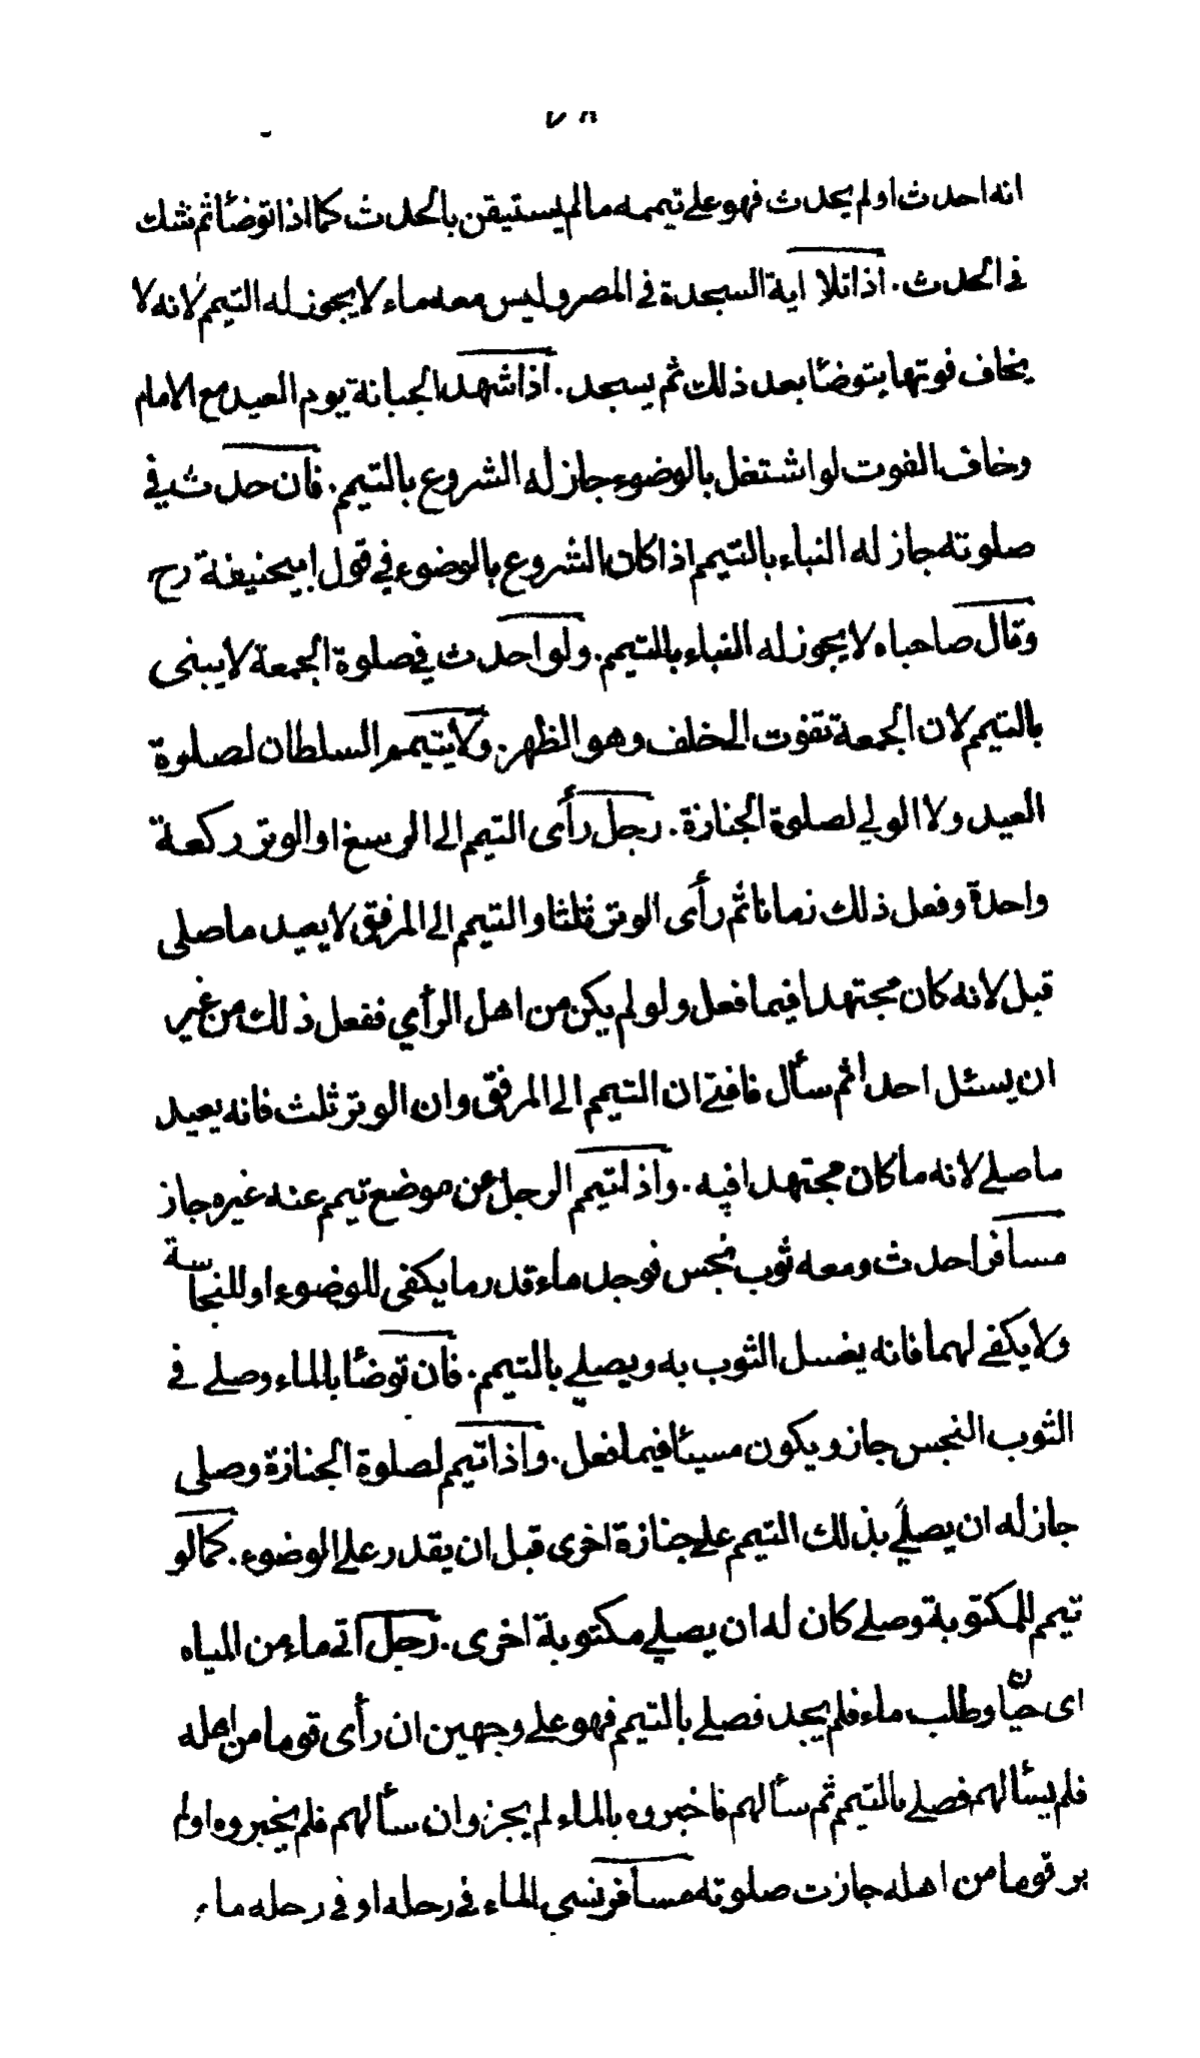 ٧٥
انه احدث اولم يحدث فهو على تيممه مالم يستيقن بالحدث كما اذا توضأ ثم شك
فى الحدث. اذا تلا اية السجدة في المصر وليس معه ماء لا يجوز له التيمم لانه لا
يخاف فوتها يتوضأ بعد ذلك ثم يسجد. اذا شهد الجبانة يوم العيد مع الامام
وخاف الفوت لو اشتغل بالوضوء جاز له الشروع بالتيمم. فان حدث في
صلوته جاز له البناء بالتيمم اذا كان الشروع بالوضوء في قول ابيحنيفة رح
وقال صاحباه لا يجوز له البناء بالتيمم. ولو احدث في صلوة الجمعة لا يبنى
بالتيمم لان الجمعة تفوت الى خلف وهو الظهر. ولا يتيمم السلطان لصلوة
العيد ولا الولي لصلوة الجنازة. رجل رأى التيمم الى الرسغ او الوتر ركعة
واحدة وفعل ذلك زمانا ثم رأى الوتر ثلثا والتيمم الى المرفق لا يعيد ما صلى
قبل لانه كان مجتهدا فيما فعل ولو لم يكن من اهل الرأي ففعل ذلك من غير
ان يسئل احدا ثم سأل فافتى ان التيمم الى المرفق وان الوتر ثلث فانه يعيد
ما صلى لانه ما كان مجتهدا فيه. واذا تيمم الرجل عن موضع تيمم عنه غيره جاز
مسافر احدث ومعه ثوب نجس فوجد ماء قدر ما يكفى للوضوء او للنجاسة
ولا يكفى لهما فانه يغسل الثوب به ويصلي بالتيمم. فان توضأ بالماء وصلى في
الثوب النجس جاز ويكون مسيئا فيما فعل. واذا تيمم لصلوة الجنازة وصلى
جاز له ان يصلي بذلك التيمم على جنازة اخرى قبل ان يقدر على الوضوء. كما لو
تيمم للمكتوبة وصلى كان له ان يصلي مكتوبة اخرى. رجل اتى ماء من المياه
اى حيا وطلب ماء فلم يجد فصلى بالتيمم فهو على وجهين ان رأى قوما من اهله
فلم يسألهم فصلى بالتيمم ثم سألهم فاخبروه بالماء لم يجز وان سألهم فلم يخبروه اولم
ير قوما من اهله جازت صلوته مسافر نسى الماء في رحله او في رحله ماء